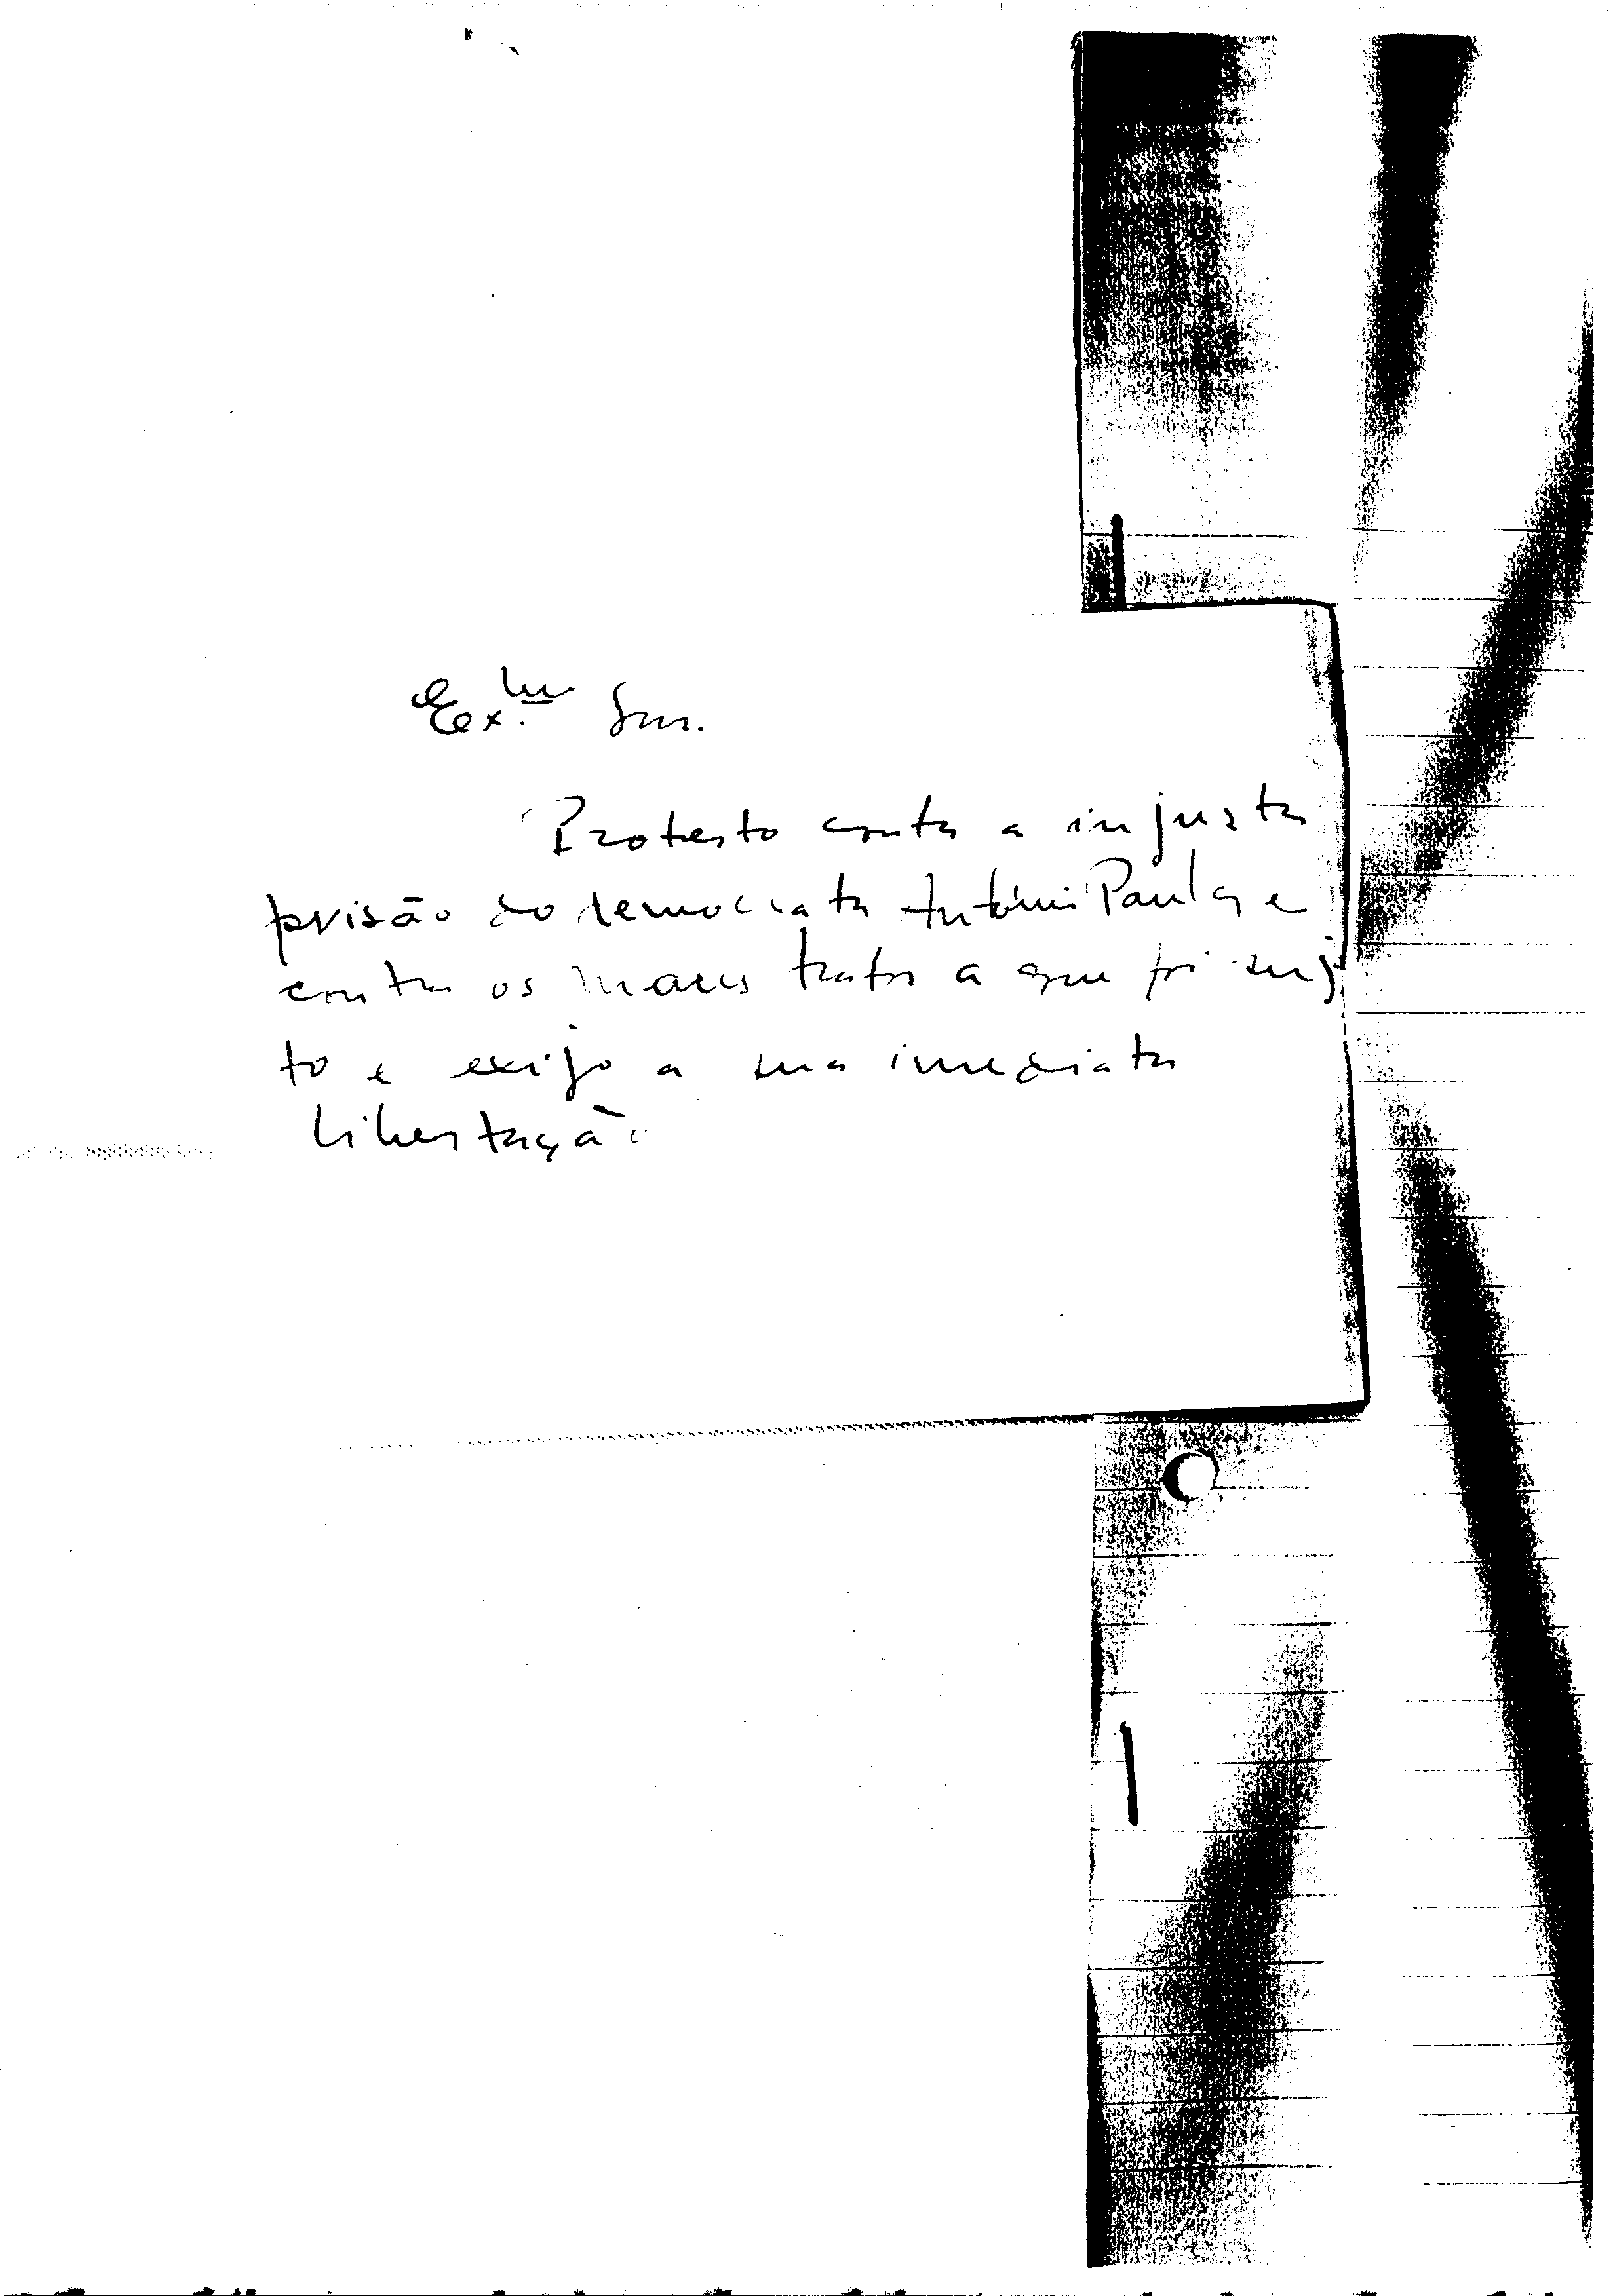 Ex.mo Snr.
Protesto contra a injusta
prisão do democrata António Paulo, e
contra os maus tratos a que foi suj
to e exijo a sua imediata
libertação